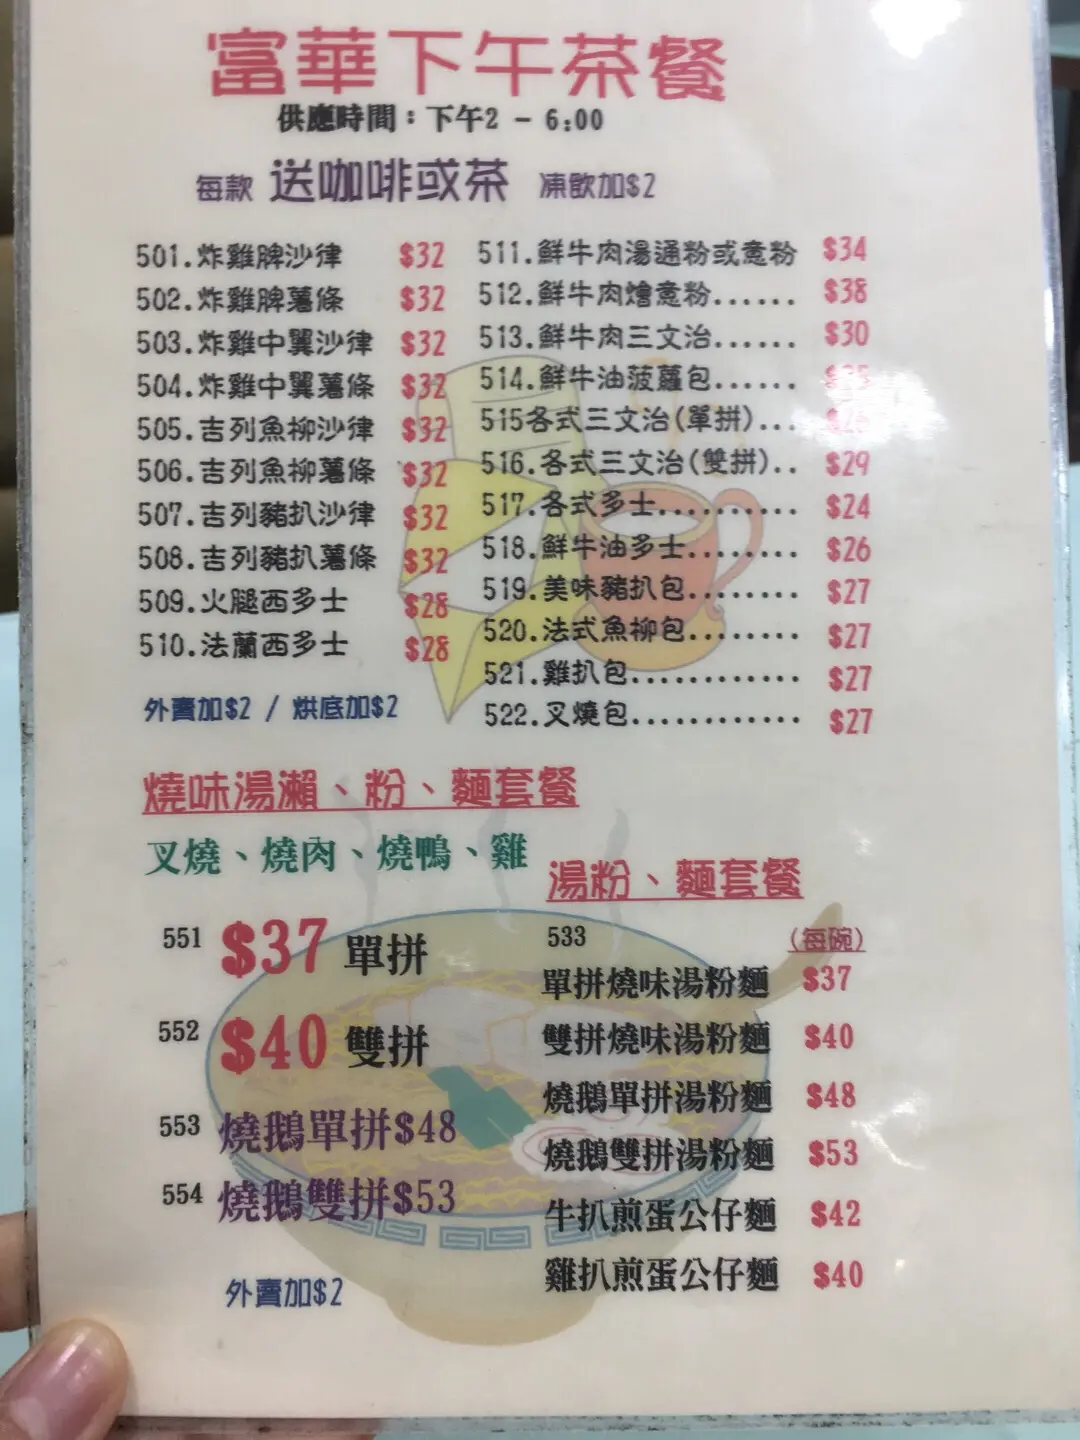 富華下午茶餐
供應時間：下午2 - 6:00
每款 送咖啡或茶 凍飲加$2
501.炸雞脾沙律 $32
502.炸雞脾薯條 $32
503.炸雞中翼沙律 $32
504.炸雞中翼薯條 $32
505.吉列魚柳沙律 $32
506.吉列魚柳薯條 $32
507.吉列豬扒沙律 $32
508.吉列豬扒薯條 $32
509.火腿西多士 $28
510.法蘭西多士 $28
外賣加$2 / 烘底加$2
511.鮮牛肉湯通粉或意粉 $34
512.鮮牛肉燴意粉...... $38
513.鮮牛肉三文治...... $30
514.鮮牛油菠蘿包......
515各式三文治(單拼)...
516.各式三文治(雙拼).. $29
517.各式多士.......... $24
518.鮮牛油多士........ $26
519.美味豬扒包........ $27
520.法式魚柳包........ $27
521.雞扒包............ $27
522.叉燒包............ $27
燒味湯瀨、粉、麵套餐
叉燒、燒肉、燒鴨、雞
551 $37 單拼
552 $40 雙拼
553 燒鵝單拼$48
554 燒鵝雙拼$53
外賣加$2
湯粉、麵套餐
533 (每碗)
單拼燒味湯粉麵 $37
雙拼燒味湯粉麵 $40
燒鵝單拼湯粉麵 $48
燒鵝雙拼湯粉麵 $53
牛扒煎蛋公仔麵 $42
雞扒煎蛋公仔麵 $40